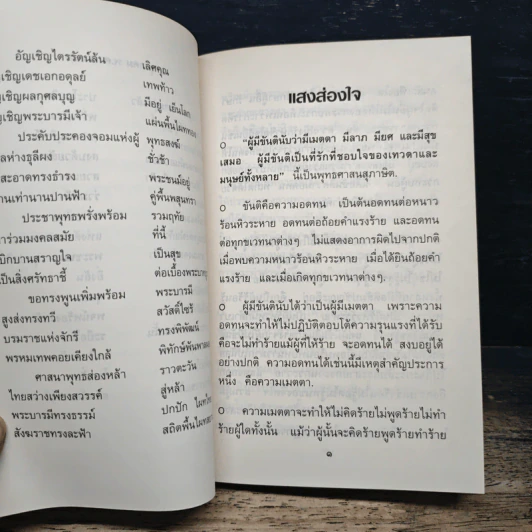 อัญเชิญไตรรัตน์ล้น เลิศคุณ
เชิญเดชเอกอดุลย์ เทพท้าว
เชิญผลกุศลบุญ มีอยู่ เย็นโลก
เชิญพระบารมีเจ้า แผ่นพื้นไผท
ประดับประคองจอมแห่งผู้ พุทธสงฆ์
ลห่างธุลีผง ชั่วช้า
สะอาดทรงธำรง พระชนม์อยู่
านเท่านานปานฟ้า คู่พื้นพสุนทรา
ประชาพุทธพรั่งพร้อม รวมฤทัย
าร่วมมงคลสมัย ที่นี้
บิกบานสราญใจ เป็นสุข
เป็นสิ่งศรัทธาชี้ ต่อเบื้องพระบาท
ขอทรงพูนเพิ่มพร้อม พระบารมี
สูงส่งทรงทวี สวัสดิ์ไซร้
บรมราชแห่งจักรี ทรงพิพัฒน์
พรหมเทพคอยเคียงใกล้ พิทักษ์พันพาร
ศาสนาพุทธส่องหล้า ราวตะวัน
ไทยสว่างเพียงสวรรค์ สู่หล้า
พระบารมีทรงธรรม์ ปกปัก ไผท
สังฆราชทรงละฟ้า สถิตพื้นไผท
แสงส่องใจ
๐ "ผู้มีขันตินับว่ามีเมตตา มีลาภ มียศ และมีสุข
เสมอ ผู้มีขันติเป็นที่รักที่ชอบใจของเทวดาและ
มนุษย์ทั้งหลาย" นี้เป็นพุทธศาสนสุภาษิต.
๐ ขันติคือความอดทน เป็นต้นอดทนต่อหนาว
ร้อนหิวระหาย อดทนต่อถ้อยคำแรงร้าย และอดทน
ต่อทุกขเวทนาต่างๆ ไม่แสดงอาการผิดไปจากปกติ
เมื่อพบความหนาวร้อนหิวระหาย เมื่อได้ยินถ้อยคำ
แรงร้าย และเมื่อเกิดทุกขเวทนาต่างๆ.
๐ ผู้มีขันตินับได้ว่าเป็นผู้มีเมตตา เพราะความ
อดทนจะทำให้ไม่ปฏิบัติตอบโต้ความรุนแรงที่ได้รับ
คือจะไม่ทำร้ายแม้ผู้ที่ให้ร้าย จะอดทนได้ สงบอยู่ได้
อย่างปกติ ความอดทนได้เช่นนี้มีเหตุสำคัญประการ
หนึ่ง คือความเมตตา.
๐ ความเมตตาจะทำให้ไม่คิดร้ายไม่พูดร้ายไม่ทำ
ร้ายผู้ใดทั้งนั้น แม้ว่าผู้นั้นจะคิดร้ายพูดร้ายทำร้าย
๑